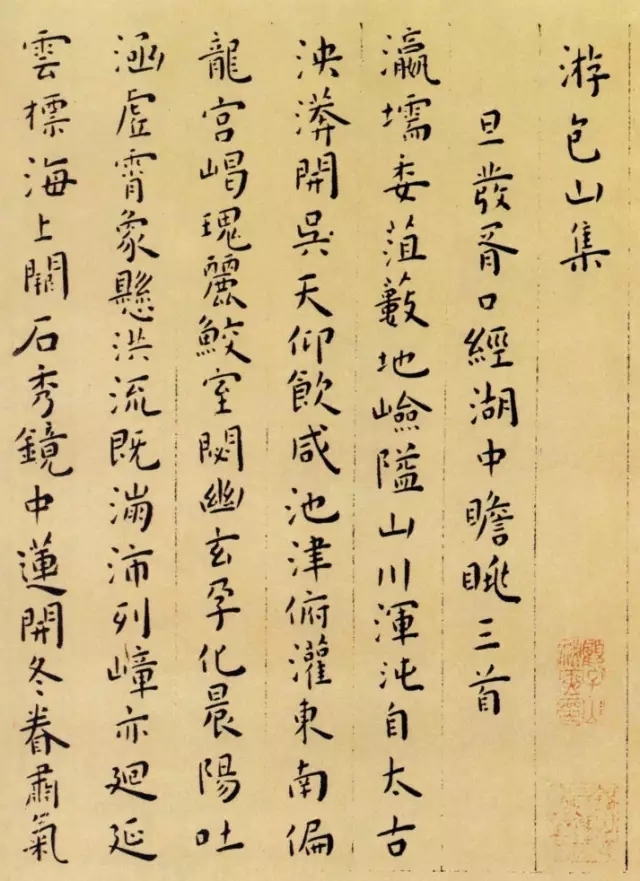 游包山集
旦發胥口經湖中瞻眺三首
瀛壖委菹藪地嶮隘山川渾沌自太古
泱漭開吳天仰飲咸池津俯灌東南偏
龍宮崵瑰麗鮫室閟幽玄孕化晨陽吐
涵虛霄象懸洪流既滿沛列嶂亦迴延
雲標海上關石秀鏡中蓮開冬眷肅氣